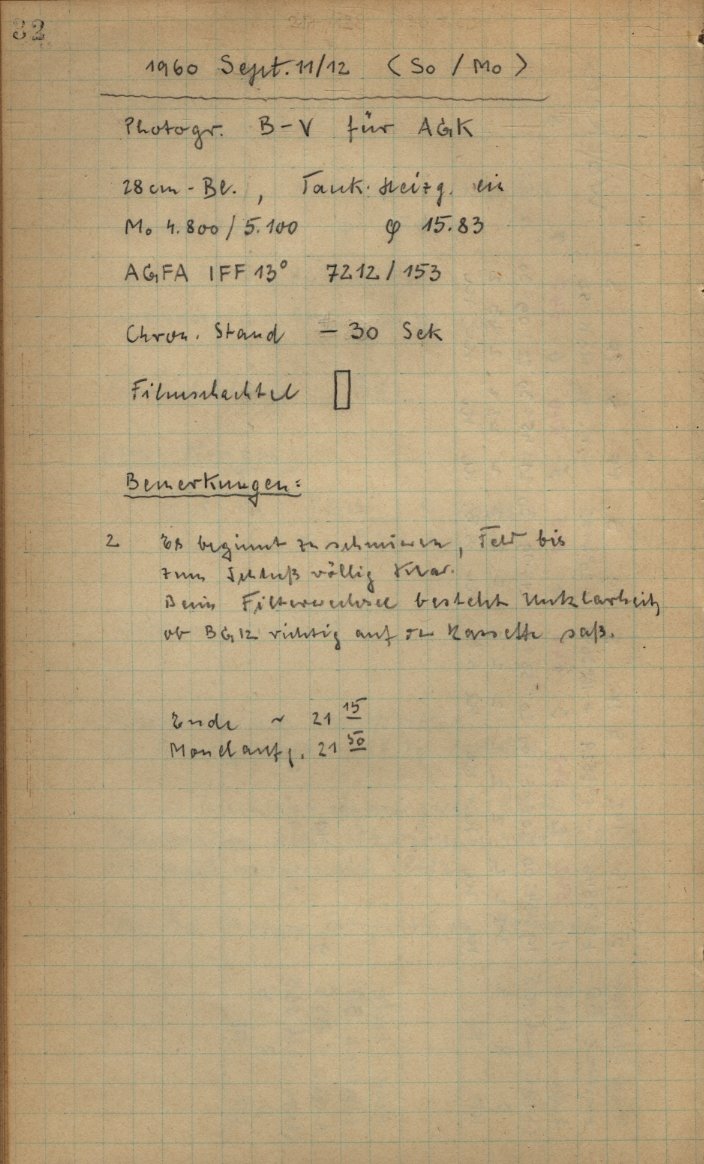 32
1960 Sept. 11/12 (So / Mo)
Photogr. B-V für AGK
28 cm - Bl., Tauk. Heizg. ein
Mo 4.800 / 5.100 φ 15.83
AGFA IFF 13° 7212/153
Chron. Stand - 30 Sek
Filmschachtel
Bemerkungen:
2 Es beginnt zu schmieren, Feld bis
zum Schluß völlig klar.
Beim Filterwechsel besteht Unklarheit,
ob BG12 richtig auf der Kassette saß.
Ende ~ 21 15
Mondaufg. 21 50